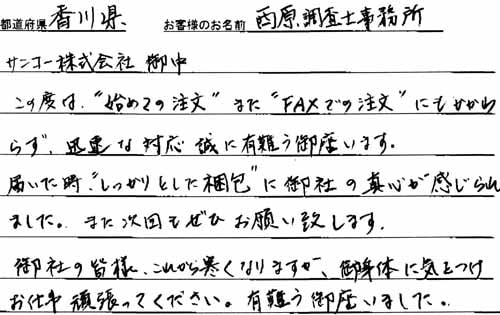 都道府県 香川県 お客様のお名前 西原調査士事務所
サンコー株式会社 御中
この度は、“始めての注文” また “FAXでの注文” にもかかわ
らず、迅速な対応 誠に有難う御座います。
届いた時、“しっかりとした梱包” に御社の真心が感じられ
ました。また次回もぜひお願い致します。
御社の皆様、これから寒くなりますが、御身体に気をつけ
お仕事頑張ってください。有難う御座いました。